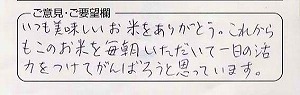 ご意見・ご要望欄
いつも美味しいお米をありがとう。これから
もこのお米を毎朝いただいて一日の活
力をつけてがんばろうと思っています。